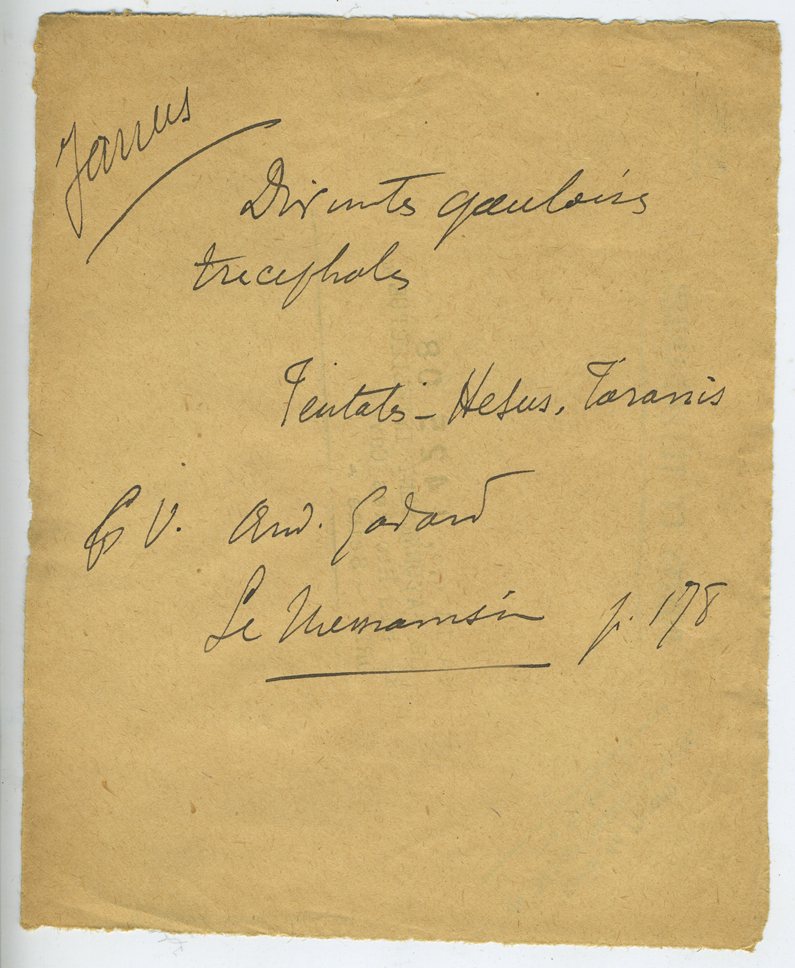 Janus
Divinites gauloises
tricephales
Teutatès - Hesus, Taranis
V. And. Godard
Le Messianisme p. 178